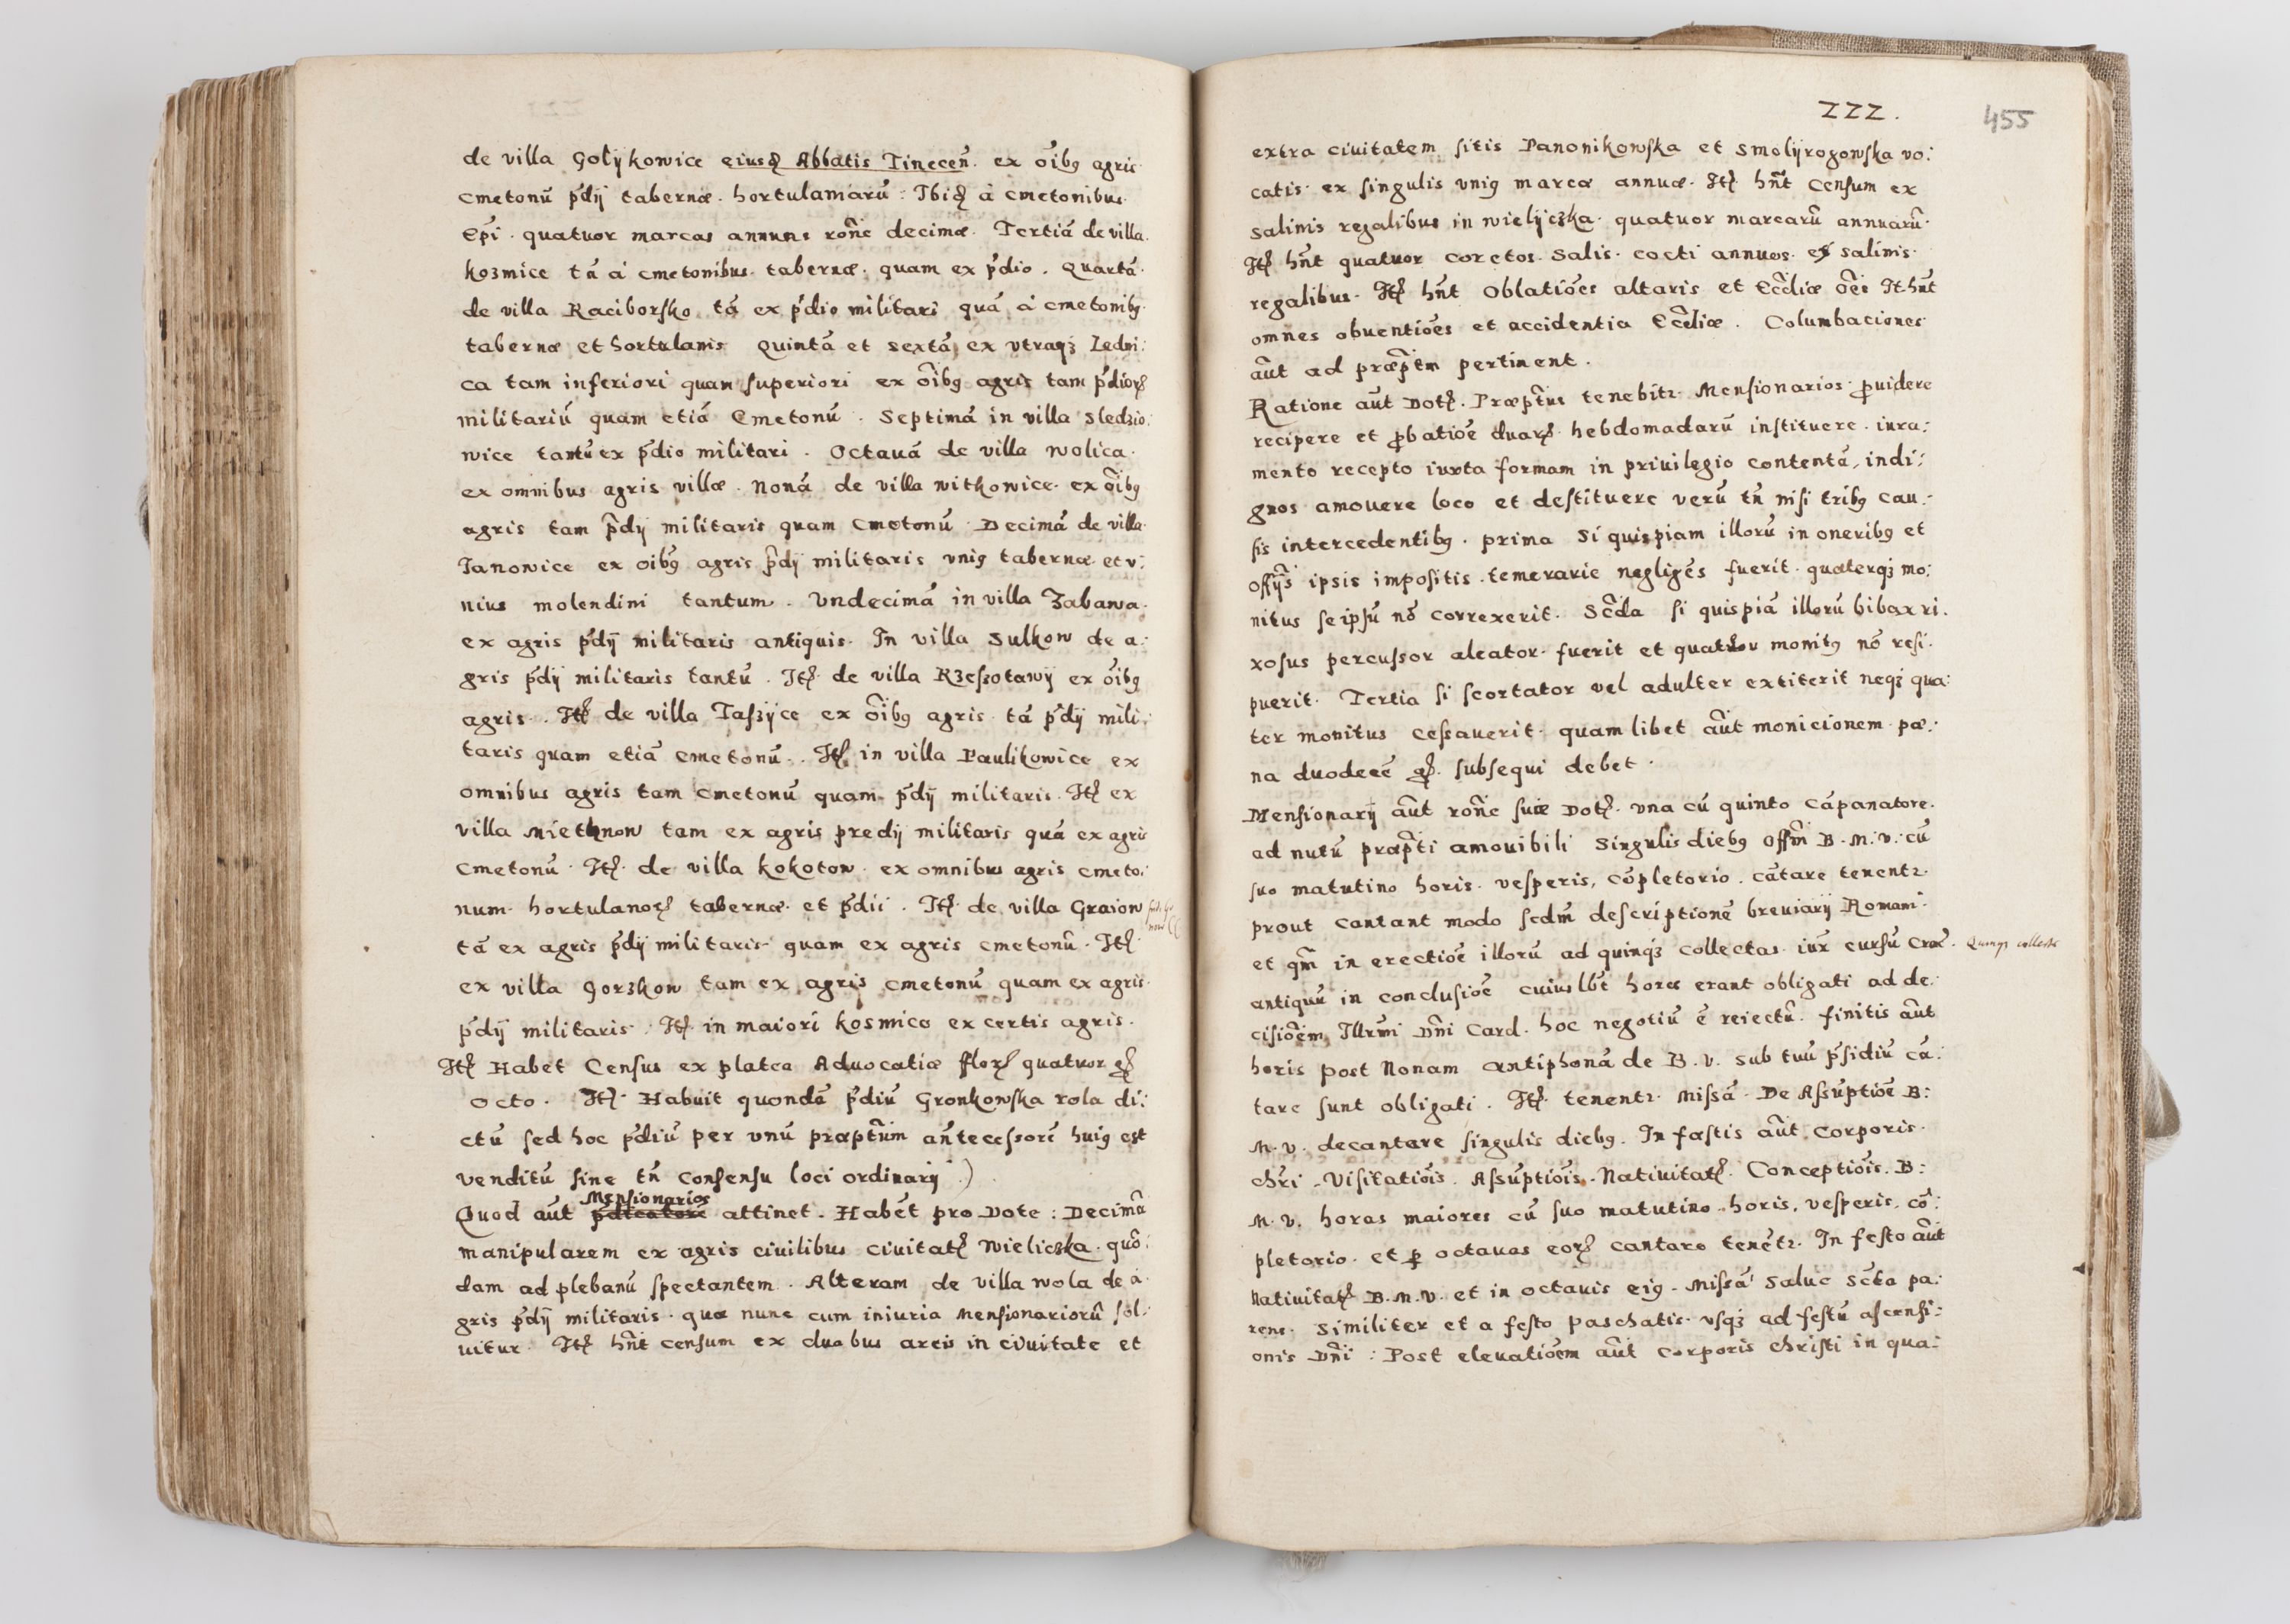 de villa Golÿkowice eiusq Abbatis Tinecen̄. ex o͞ibꝯ agris
cmetonū p̄dij tabernæ. hortulaniarū: Ibiq à cmetonibus
Epi. quatuor marcas annuas ro͞ne decimæ. Tertiā de villa
kozmice tā à cmetonibus. tabernæ. quam ex p̄dio. Quartā
de villa Raciborsko tā ex p̄dio militari quā à cmetonibꝯ
tabernæ et hortulanis Quintā et sextā ex vtraqꝫ Ledni:
ca tam inferiori quam superiori ex o͞ibꝯ agris tam p̄diorꝝ
militariū quam etiā Cmetonū. Septimā in villa Sledzio:
wice tantū ex p̄dio militari. Octauā de villa wolica.
ex omnibus agris villæ. Nonā de villa witkowice. ex o͞ibꝯ
agris tam p̄dij militaris quam Cmetonū. Decimā de villa
Janowice ex oibꝯ agris p̄dij militaris vniꝯ tabernæ et v:
nius molendini tantum. Vndecimā in villa Zabawa.
ex agris p̄dij militaris antiquis. In villa Sulkow de a:
gris p̄dij militaris tantū. Itꝭ de villa Rzeszotawÿ ex o͞ibꝯ
agris. Itꝭ de villa Taszÿce ex o͞ibꝯ agris tā p̄dij mili:
taris quam etiā cmetonū. Itꝭ in villa Paulikowice ex
omnibus agris tam cmetonū quam p̄dij militaris. Itꝭ ex
villa Miethnow tam ex agris predij militaris quā ex agris
cmetonū. Itꝭ de villa kokotow. ex omnibus agris cmeto:
num hortulanoꝝ tabernæ. et p̄dii. Itꝭ de villa Graiow
tā ex agris p̄dij militaris quam ex agris cmetonū. Itꝭ
ex villa Gorzkow tam ex agris cmetonū quam ex agris
p̄dij militaris. Itꝭ in maiori kosmice ex certis agris.
Itꝭ Habet Census ex platea Aduocatiæ fflorꝝ quatuor gꝝ
octo. Itꝭ Habuit quondā p̄diū Gronkowska rola di:
ctū sed hoc p̄diū per vnū præpt͞um an̄tecessorē huiꝯ est
venditū sine tn̄ consensu loci ordinarij.)
Mensionarios
Quod aūt p̄dicatorē attinet. Habēt pro Dote: Decimā
manipularem ex agris ciuilibus ciuitatꝭ wieliczka. quō:
dam ad plebanū spectantem. Alteram de villa wola de a:
gris p̄dij militaris. quæ nunc cum iniuria mensionariorū sol:
uitur. Itꝭ hn̄t censum ex duabus areis in ciuitate et
ZZZ.
455
extra ciuitatem sitis Panonikowska et Smolÿrogowska vo:
catis ex singulis vniꝯ marcæ annuæ. Itꝭ hn̄t censum ex
salinis regalibus in wielÿczka. quatuor marcarū annuarū.
Itꝭ hn̄t quatuor coretos Salis cocti annuos ex salinis
regalibus. Itꝭ hn̄t Oblatiōes altaris et Ecc͞liæ o͞es It hn̄t
omnes obuentiōes et accidentia Ecc͞liæ. Columbaciones
aūt ad præpt͞m pertinent.
Ratione aūt Dotꝭ. Præpt͞us tenebitꝛ Mensionarios ꝓuidere
recipere et ꝓbatiōe duarꝝ hebdomadarū instituere. iura:
mento recepto iuxta formam in priuilegio contentā, indi:
gnos amouere loco et destituere verū tn̄ nisi tribꝯ cau:
sis intercedentibꝯ. prima Si quispiam illorū in oneribꝯ et
offijs ipsis impositis temerarie negligēs fuerit quaterqꝫ mo:
nitus seipsū nō correxerit. Sc͞da si quispiā illorū bibax ri:
xosus percussor aleator fuerit et quatuor monitꝯ nō resi:
puerit. Tertia si scortator vel adulter extiterit neqꝫ qua:
ter monitus cessauerit. quamlibet aūt monicionem pæ:
na duodecē gꝝ. subsequi debet.
Mensionarij aūt ro͞ne suæ Dotꝭ. vna cū quinto cāpanatore.
ad nutū præpt͞i amouibili Singulis diebꝯ off͞m B. M. V. cū
suo matutino horis vesperis, cōpletorio. cātare tenentꝛ.
prout cantant modo scdm̄ descriptionē breuiarij Romani.
et qm̄ in erectiōe illorū ad quinqꝫ collectas iux̄ cursū Crac̄. Quinqꝫ collectæ
antiquū in conclusiōe cuiuslb̄t horæ erant obligati ad de:
cisiōem Illrm̄i Dn̄i Card. hoc negotiū ē reiectū. finitis aūt
horis post Nonam antiphonā de B. V. Sub tuū p̄sidiū cā:
tare sunt obligati. Itꝭ tenentꝛ Missā De Assūptiōe B:
M. V. decantare singulis diebꝯ. In festis aūt Corporis
chr̄i. Visitatiōis. Assūptiōis. Natiuitatꝭ. Conceptiōis. B:
M. V. horas maiores cū suo matutino. horis, vesperis, cō:
pletorio. et ꝑ octauas eorꝝ cantare tenētꝛ. In festo aūt
Natiuitatꝭ B. M. V. et in octauis eiꝯ. Missā Salue Sc̄ta pa:
rens. Similiter et a festo paschatis vsqꝫ ad festū ascensi:
onis Dn̄i: Post eleuatiōem aūt Corporis christi in qua: